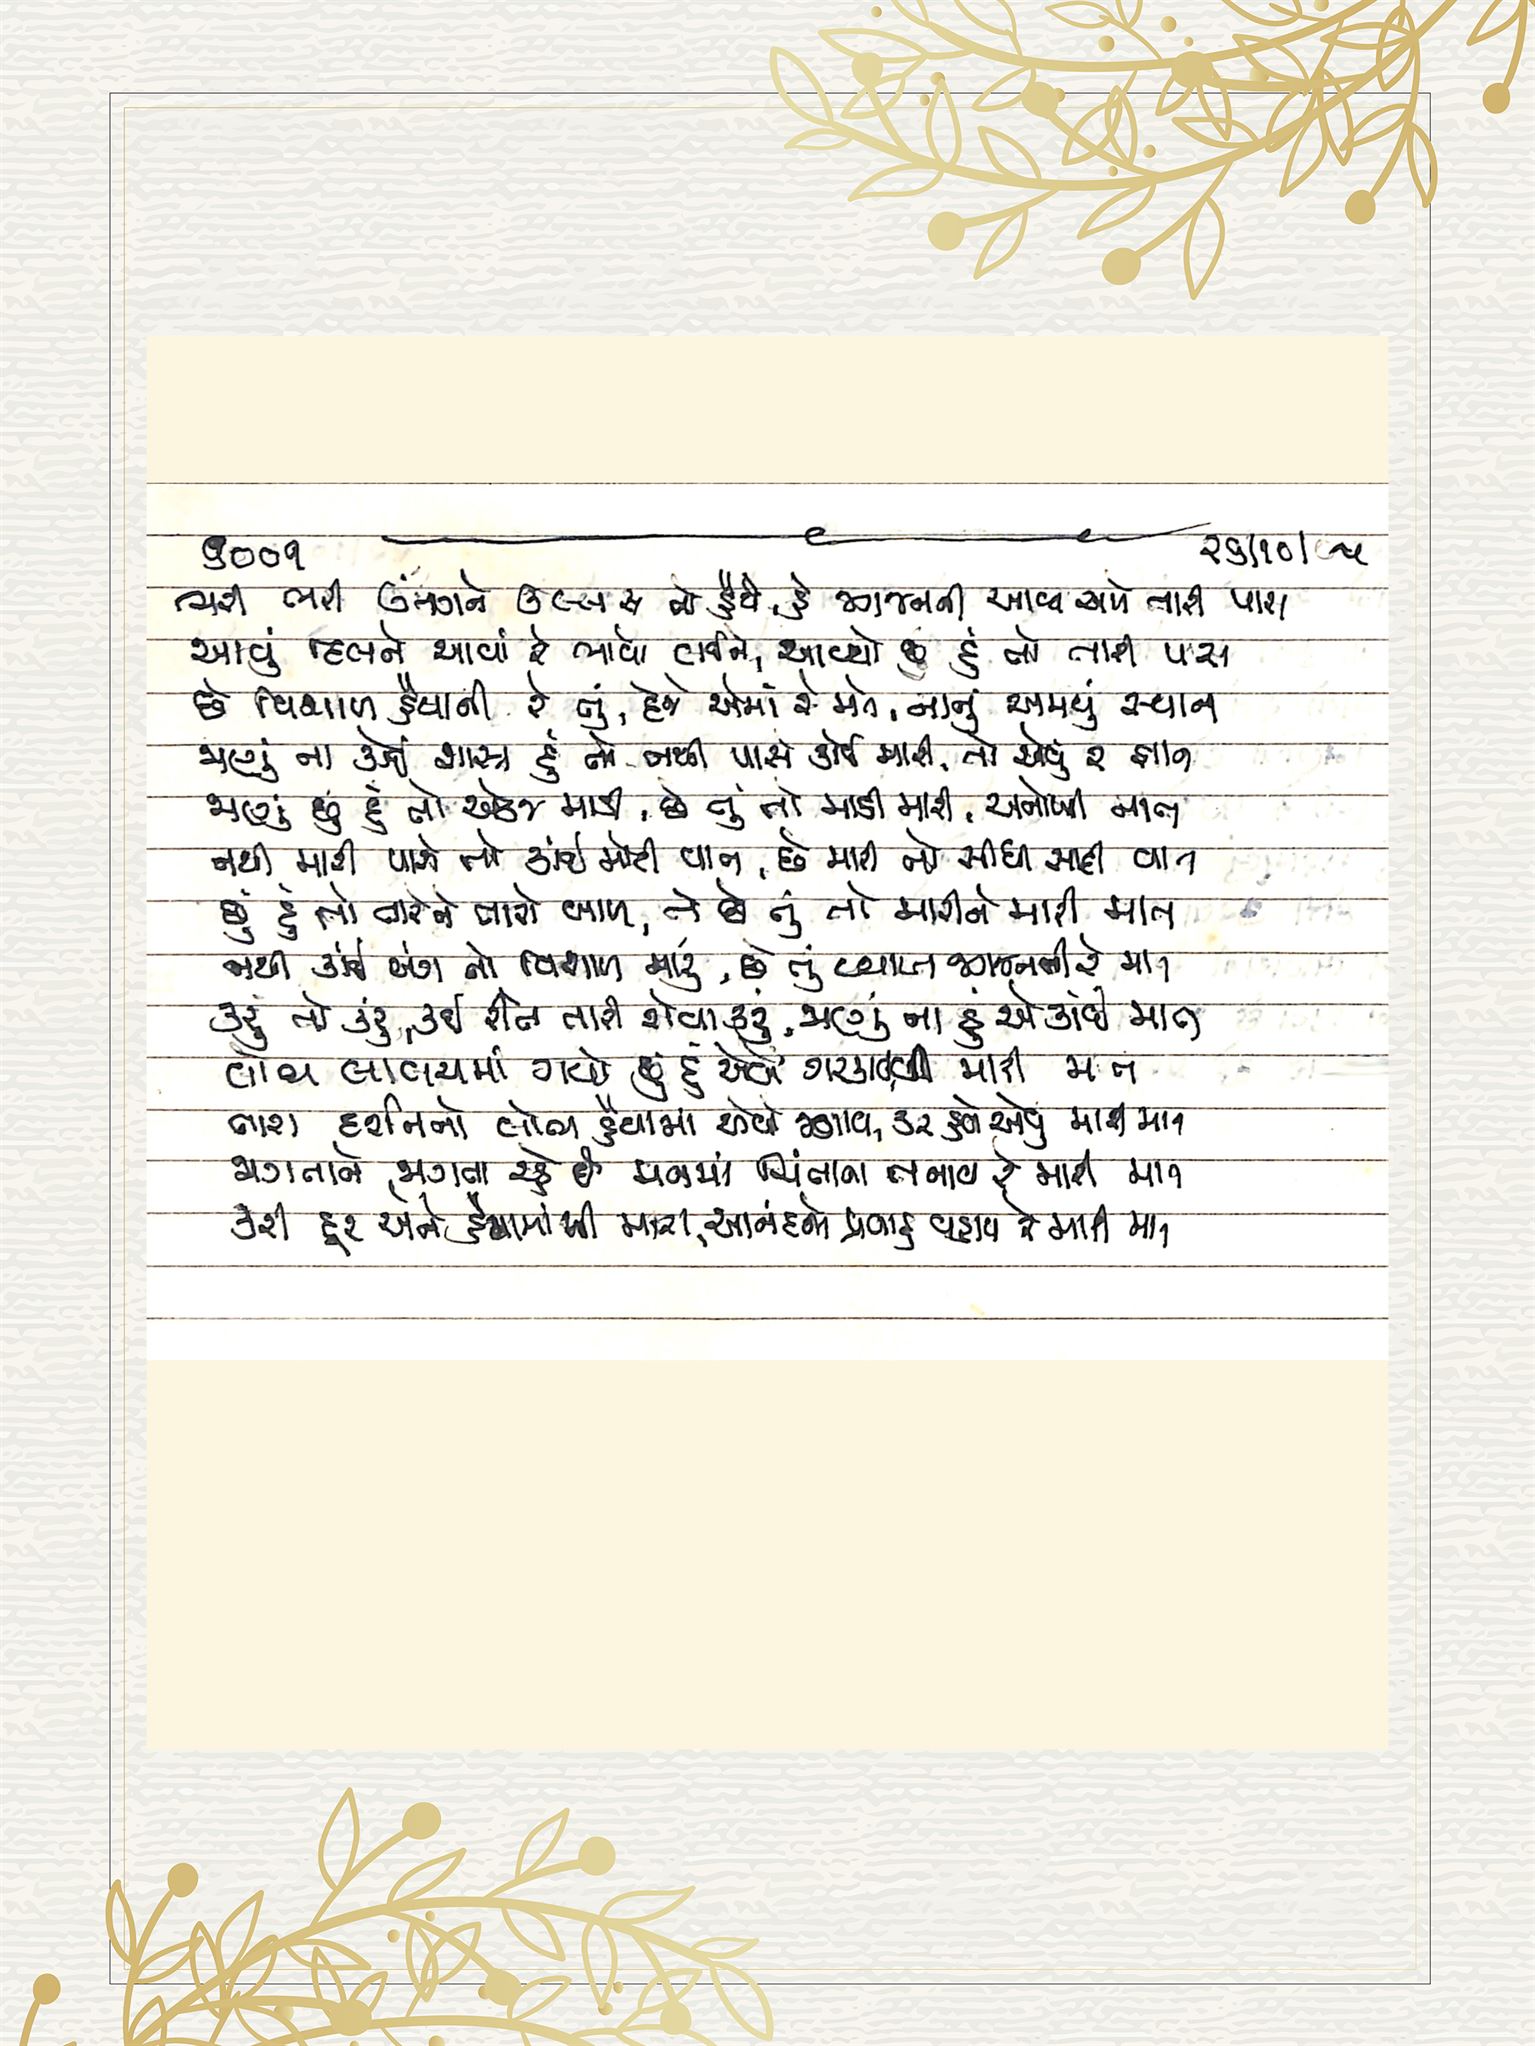 ૬૦૦૧ ૨૬/૧૦/
ભરી ભરી ઉમંગને ઉલ્લાસ તો હૈયે, હે જગજનની આવ્યા અમે તારી પાસ
આવું દિલને આવાં રે ભાવો લઈને, આવ્યો છું હું તો તારી પાસ
છે વિશાળ હૈયાની રે તું, દેજે એમાં રે મને, નાનું અમથું સ્થાન
ભણ્યું ના કોઈ શાસ્ત્ર હું તો નથી પાસે કોઈ મારી, તો એવું રે જ્ઞાન
જાણું છું હું તો એકજ માડી, છે તું તો માડી મારી, અનોખી માત
નથી મારી પાસે તો કાંઈ મોટી વાત, છે મારી તો સીધી સાદી વાત
છું હું તો તારોને તારો બાળ, ને છે તું તો મારીને મારી માત
નથી કાંઈ અંગ તો વિશાળ મારું, છે તું વ્યાપ્ત જગજનની રે માત
કરું તો કરું, કઈ રીતે તારી સેવા કરું, જાણું ના હું એ કાંઈ માત
લોભ લાલચમાં ગયો છું હું એવો મારી માત
તારા દર્શનનો લોભ હૈયામાં એવો જગાવ, કર હવે એવું મારી માત
જાગતાને જાગતા રહે છે મનમાં ચિંતાના તનાવ રે મારી માત
કરી દૂર એને હૈયામાંથી મારા, આનંદનો પ્રવાહ વહાવ રે મારી માત